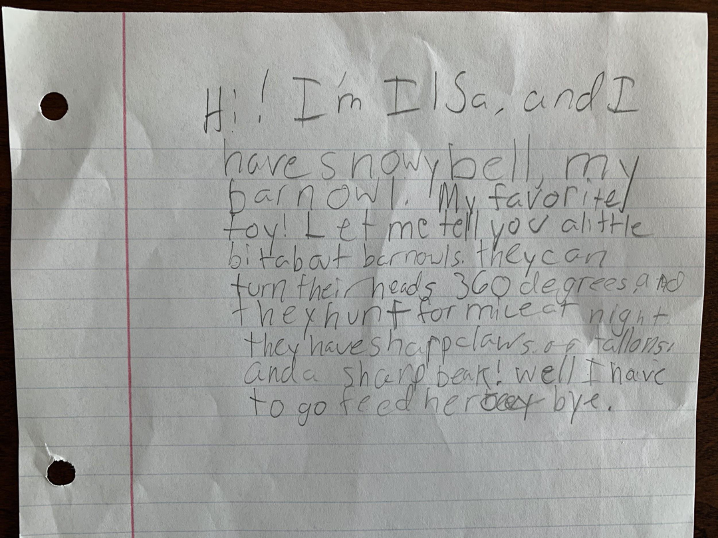 Hi! I'm Ilsa, and I
have snowybell, my
barnowl. My favorite
toy! Let me tell you alittle
bitabout barnowls. they can
turn their heads 360 degrees, and
they hunt for mice at night.
they have sharp claws. or tallons,
and a sharp beak! well I have
to go feed her bye.